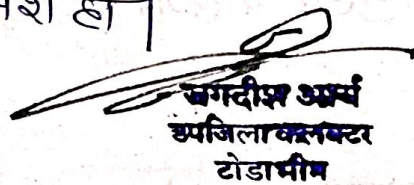 हो |
जगदीश आर्य
उपजिला कलक्टर
टोडाभीम